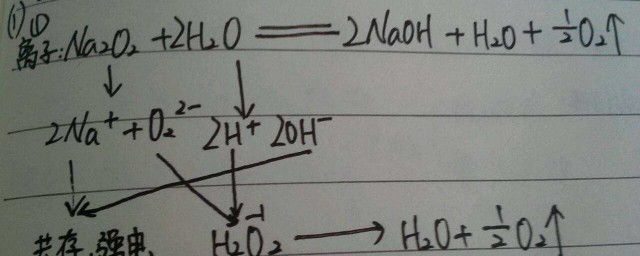 (1) ①
离子:Na₂O₂ + 2H₂O ══ 2NaOH + H₂O + 1/2 O₂↑
↓ ↓
2Na⁺ + O₂²⁻ 2H⁺ 2OH⁻
共存、强电、 H₂O₂⁻¹ → H₂O + 1/2 O₂↑